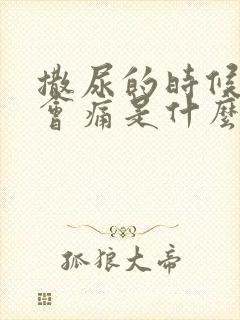 撒尿的時候
會痛是什麼
孤狼大帝